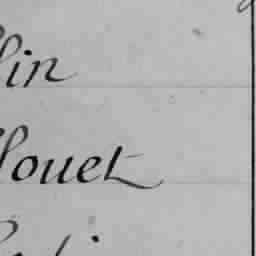 lin
louet